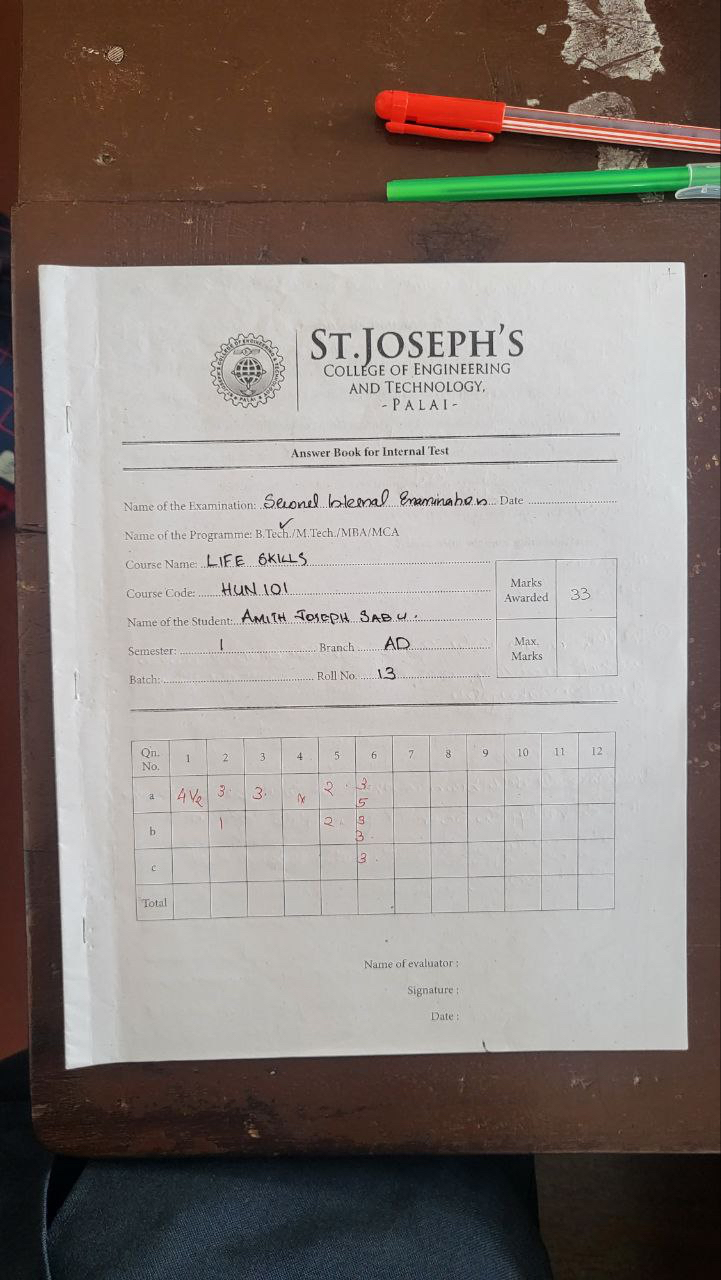 ST.JOSEPH'S
COLLEGE OF ENGINEERING
AND TECHNOLOGY,
-PALAI-
Answer Book for Internal Test
Name of the Examination: Second Internal Examination Date
Name of the Programme: B.Tech./M.Tech./MBA/MCA
Course Name: LIFE SKILLS
Course Code: HUN 101
Marks Awarded 33
Name of the Student: AMITH JOSEPH SABU.
Semester: 1 Branch AD
Max. Marks
Batch: Roll No. 13
Qn. No. 1 2 3 4 5 6 7 8 9 10 11 12
a 4½ 3. 3. 2. 3. 5
b 1 2. 3 3.
c 3.
Total
Name of evaluator :
Signature :
Date :